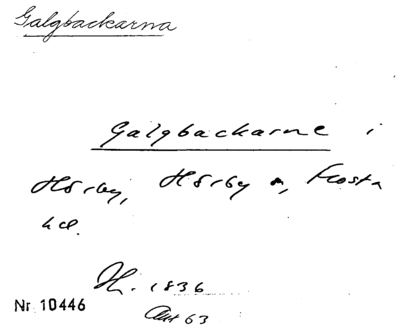 Galgbackarna
Galgbackarne i
Hörby, Hörby s, Frosta
hd.
H. 1836
Nr 10446
Ant 63